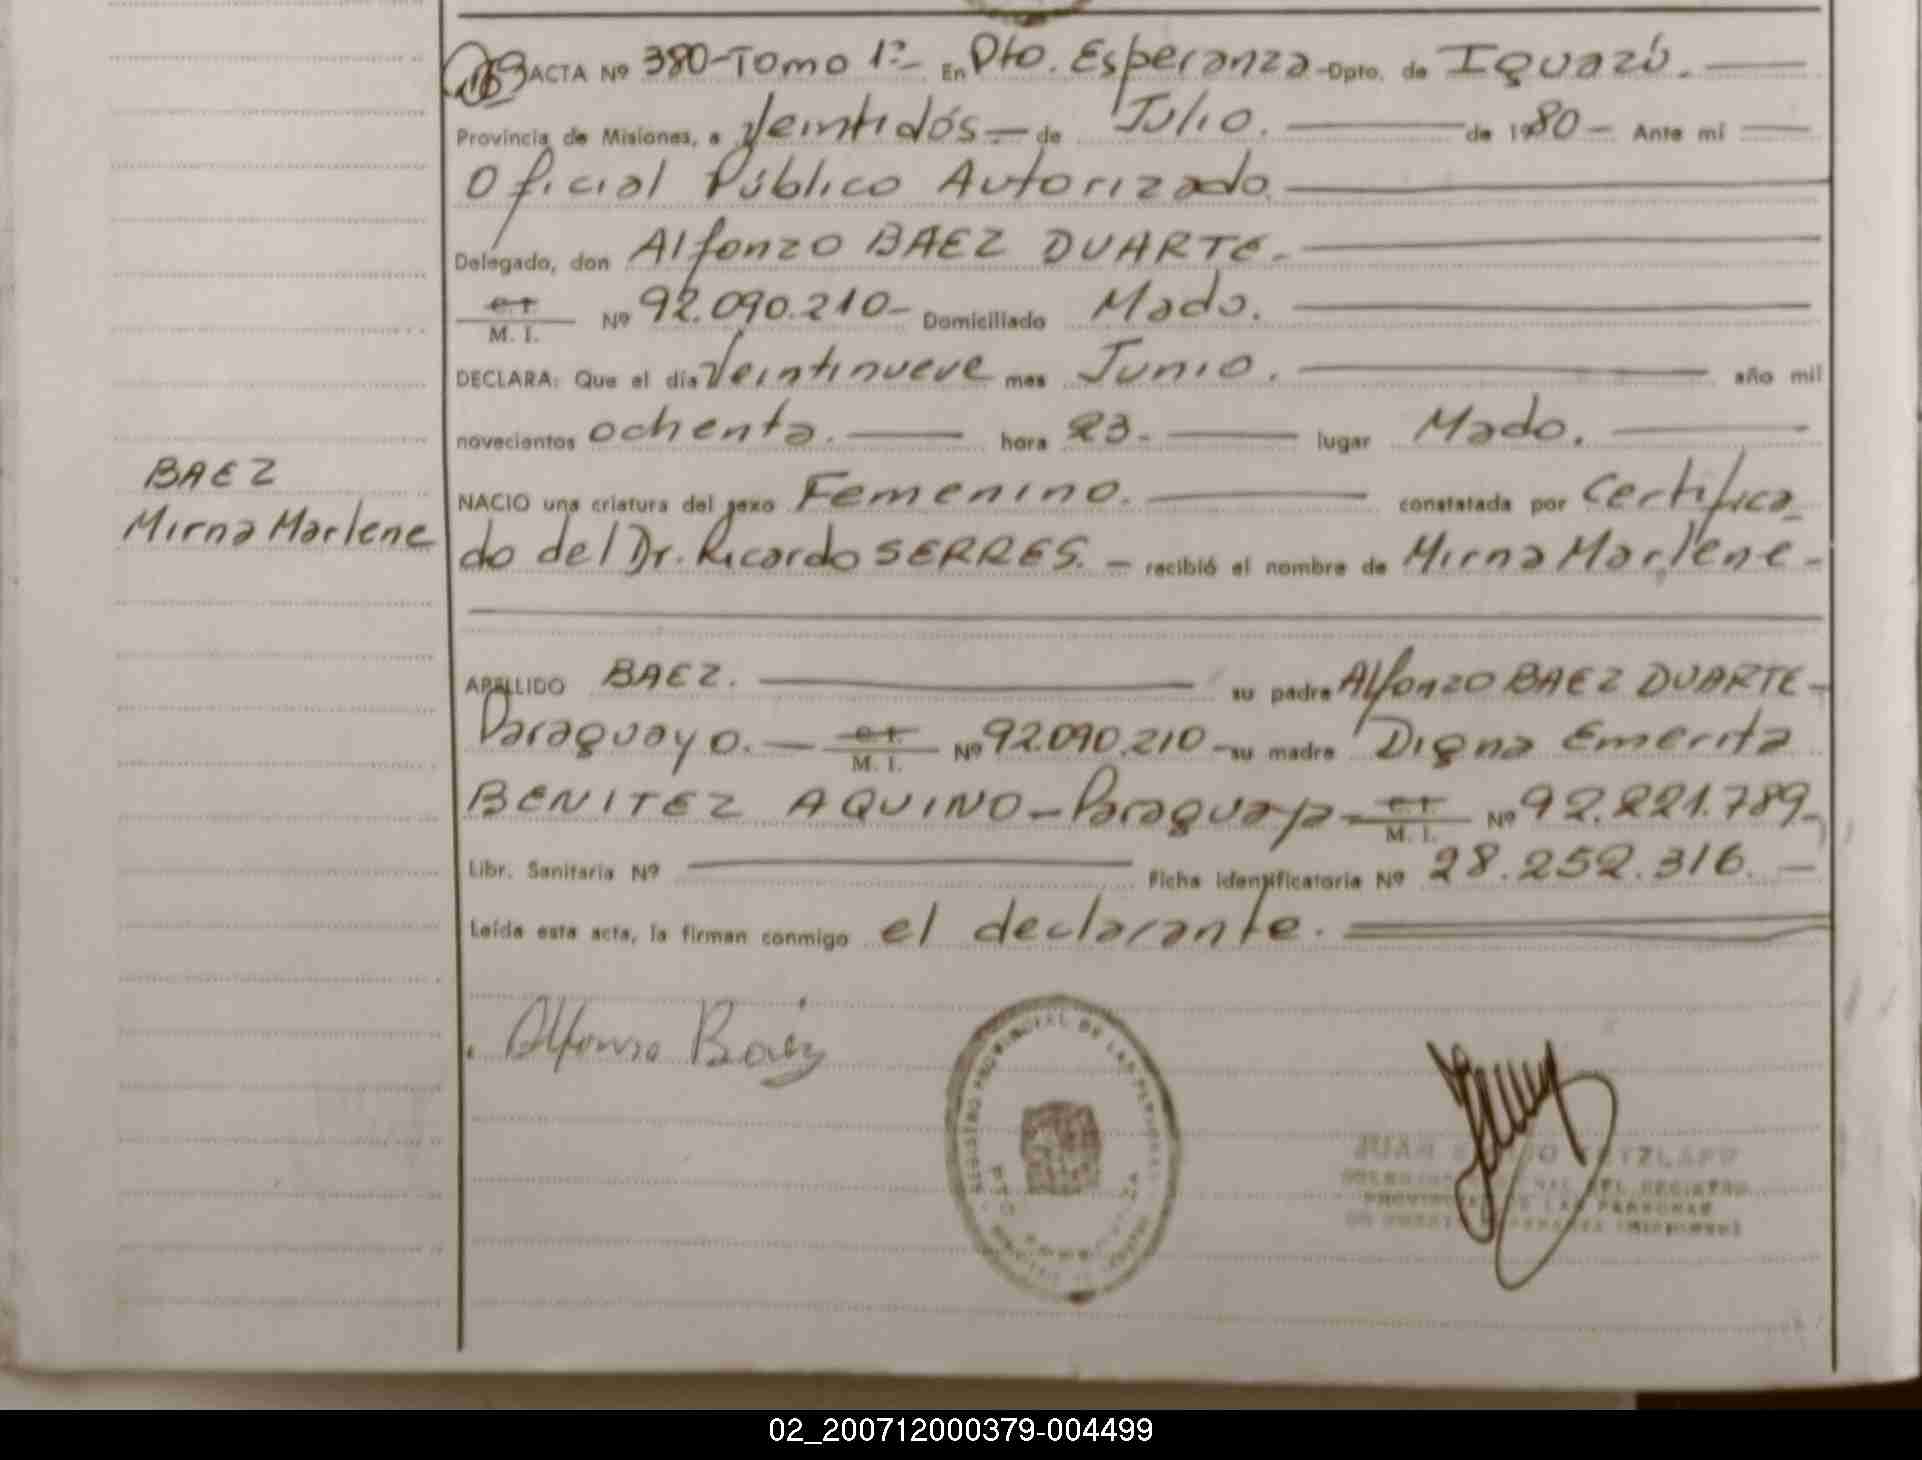 ACTA Nº 380-Tomo 1º- En Pto. Esperanza -Dpto. de Iguazú.
Provincia de Misiones, a Veintidós- de Julio. de 1980- Ante mi
Oficial Público Autorizado.
Delegado, don Alfonzo BAEZ DUARTE.
C.I. M. I. Nº 92.090.210- Domiciliado Mado.
DECLARA: Que el día Veintinueve mes Junio. año mil
novecientos ochenta. hora 23. lugar Mado.
BAEZ
NACIO una criatura del sexo Femenino. constatada por Certifica_
Mirna Marlene
do del Dr. Ricardo SERRES. - recibió el nombre de Mirna Marlene-
APELLIDO BAEZ. su padre Alfonzo BAEZ DUARTE-
Paraguayo. C.I. M. I. Nº 92.090.210- su madre Digna Emerita
BENITEZ AQUINO-Paraguaya- C.I. M. I. Nº 92.221.789-
Libr. Sanitaria Nº Ficha identificatoria Nº 28.252.316. -
Leída esta acta, la firman conmigo el declarante.
Alfonso Baéz
REGISTRO PROVINCIAL DE LAS PERSONAS
JUAN
DEL REGISTRO
LAS PERSONAS
(MISIONES)
02_200712000379-004499